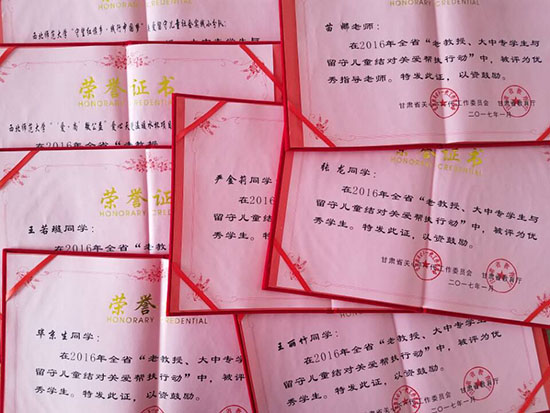 西北师范大学“守望红旗乡·践行中国梦”关爱留守儿童社会实践小分队:
在2016年全省“老教授、大中专学生与
荣誉证书
HONORARY CREDENTIAL
西北师范大学“爱·尚
在2016年全省“老教
荣誉证
HONORARY CREDEN
同学:
在2016年全省“老
荣誉
HONORARY CREDENTIAL
毕京生同学:
在2016年全省“老教授、大中专学生与
留守儿童结对关爱帮扶行动”中,被评为优
秀学生。特发此证,以资鼓励。
苗娜老师:
在2016年全省“老教授、大中专学生与
留守儿童结对关爱帮扶行动”中,被评为优
秀指导老师。特发此证,以资鼓励。
甘肃省关 工作委员会 甘肃省教育厅
二〇一七年一月
严金莉同学
在2016年
留守儿童结
秀学生。特发
张龙同学:
在2016年全省“老教授、大中专学生与
留守儿童结对关爱帮扶行动”中,被评为优
秀学生。特发此证,以资鼓励。
甘肃省关 工作委员会 甘肃省教育厅
二〇一七年一月
HONORARY CREDENTIAL
王丽竹同学:
在2016年全省“老教授、大中专学生与
留守儿童结对关爱帮扶行动”中,被评为优
秀学生。特发此证,以资鼓励。